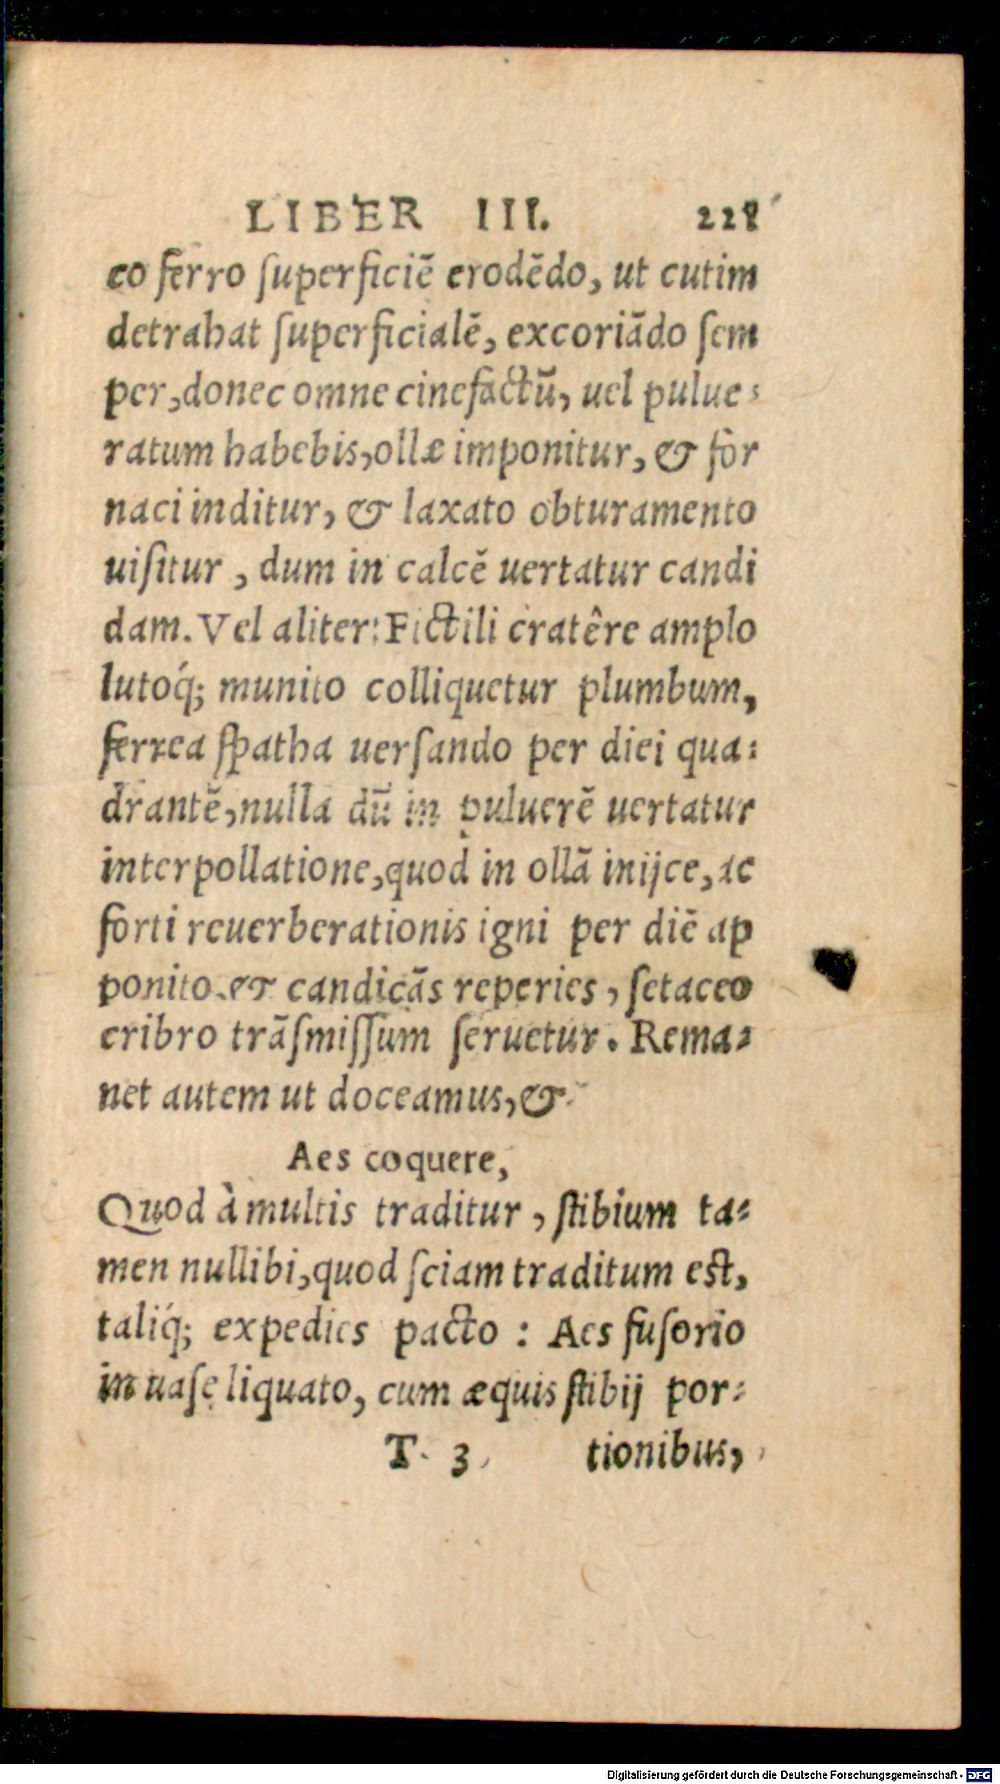 LIBER III. 228
eo ferro ſuperficiē erodēdo, ut cutim
detrahat ſuperficialē, excoriādo ſem
per, donec omne cinefactū, uel pulue⸗
ratum habebis, ollæ imponitur, & for
naci inditur, & laxato obturamento
uiſitur, dum in calcē uertatur candi
dam. Vel aliter: Fictili cratêre amplo
lutoq́; munito colliquetur plumbum,
ferrea ſpatha uerſando per diei qua⸗
drantē, nulla dū in puluerē uertatur
interpollatione, quod in ollā inijce, ac
forti reuerberationis igni per diē ap
ponito & candicās reperies, ſetaceo
cribro trāſmiſſum ſeruetur. Rema⸗
net autem ut doceamus, &
Aes coquere,
Quod à multis traditur, ſtibium ta⸗
men nullibi, quod ſciam traditum est,
taliq́; expedies pacto: Aes fuſorio
in uaſe liquato, cum æquis ſtibij por⸗
T 3 tionibus,
Digitalisierung gefördert durch die Deutsche Forschungsgemeinschaft - DFG